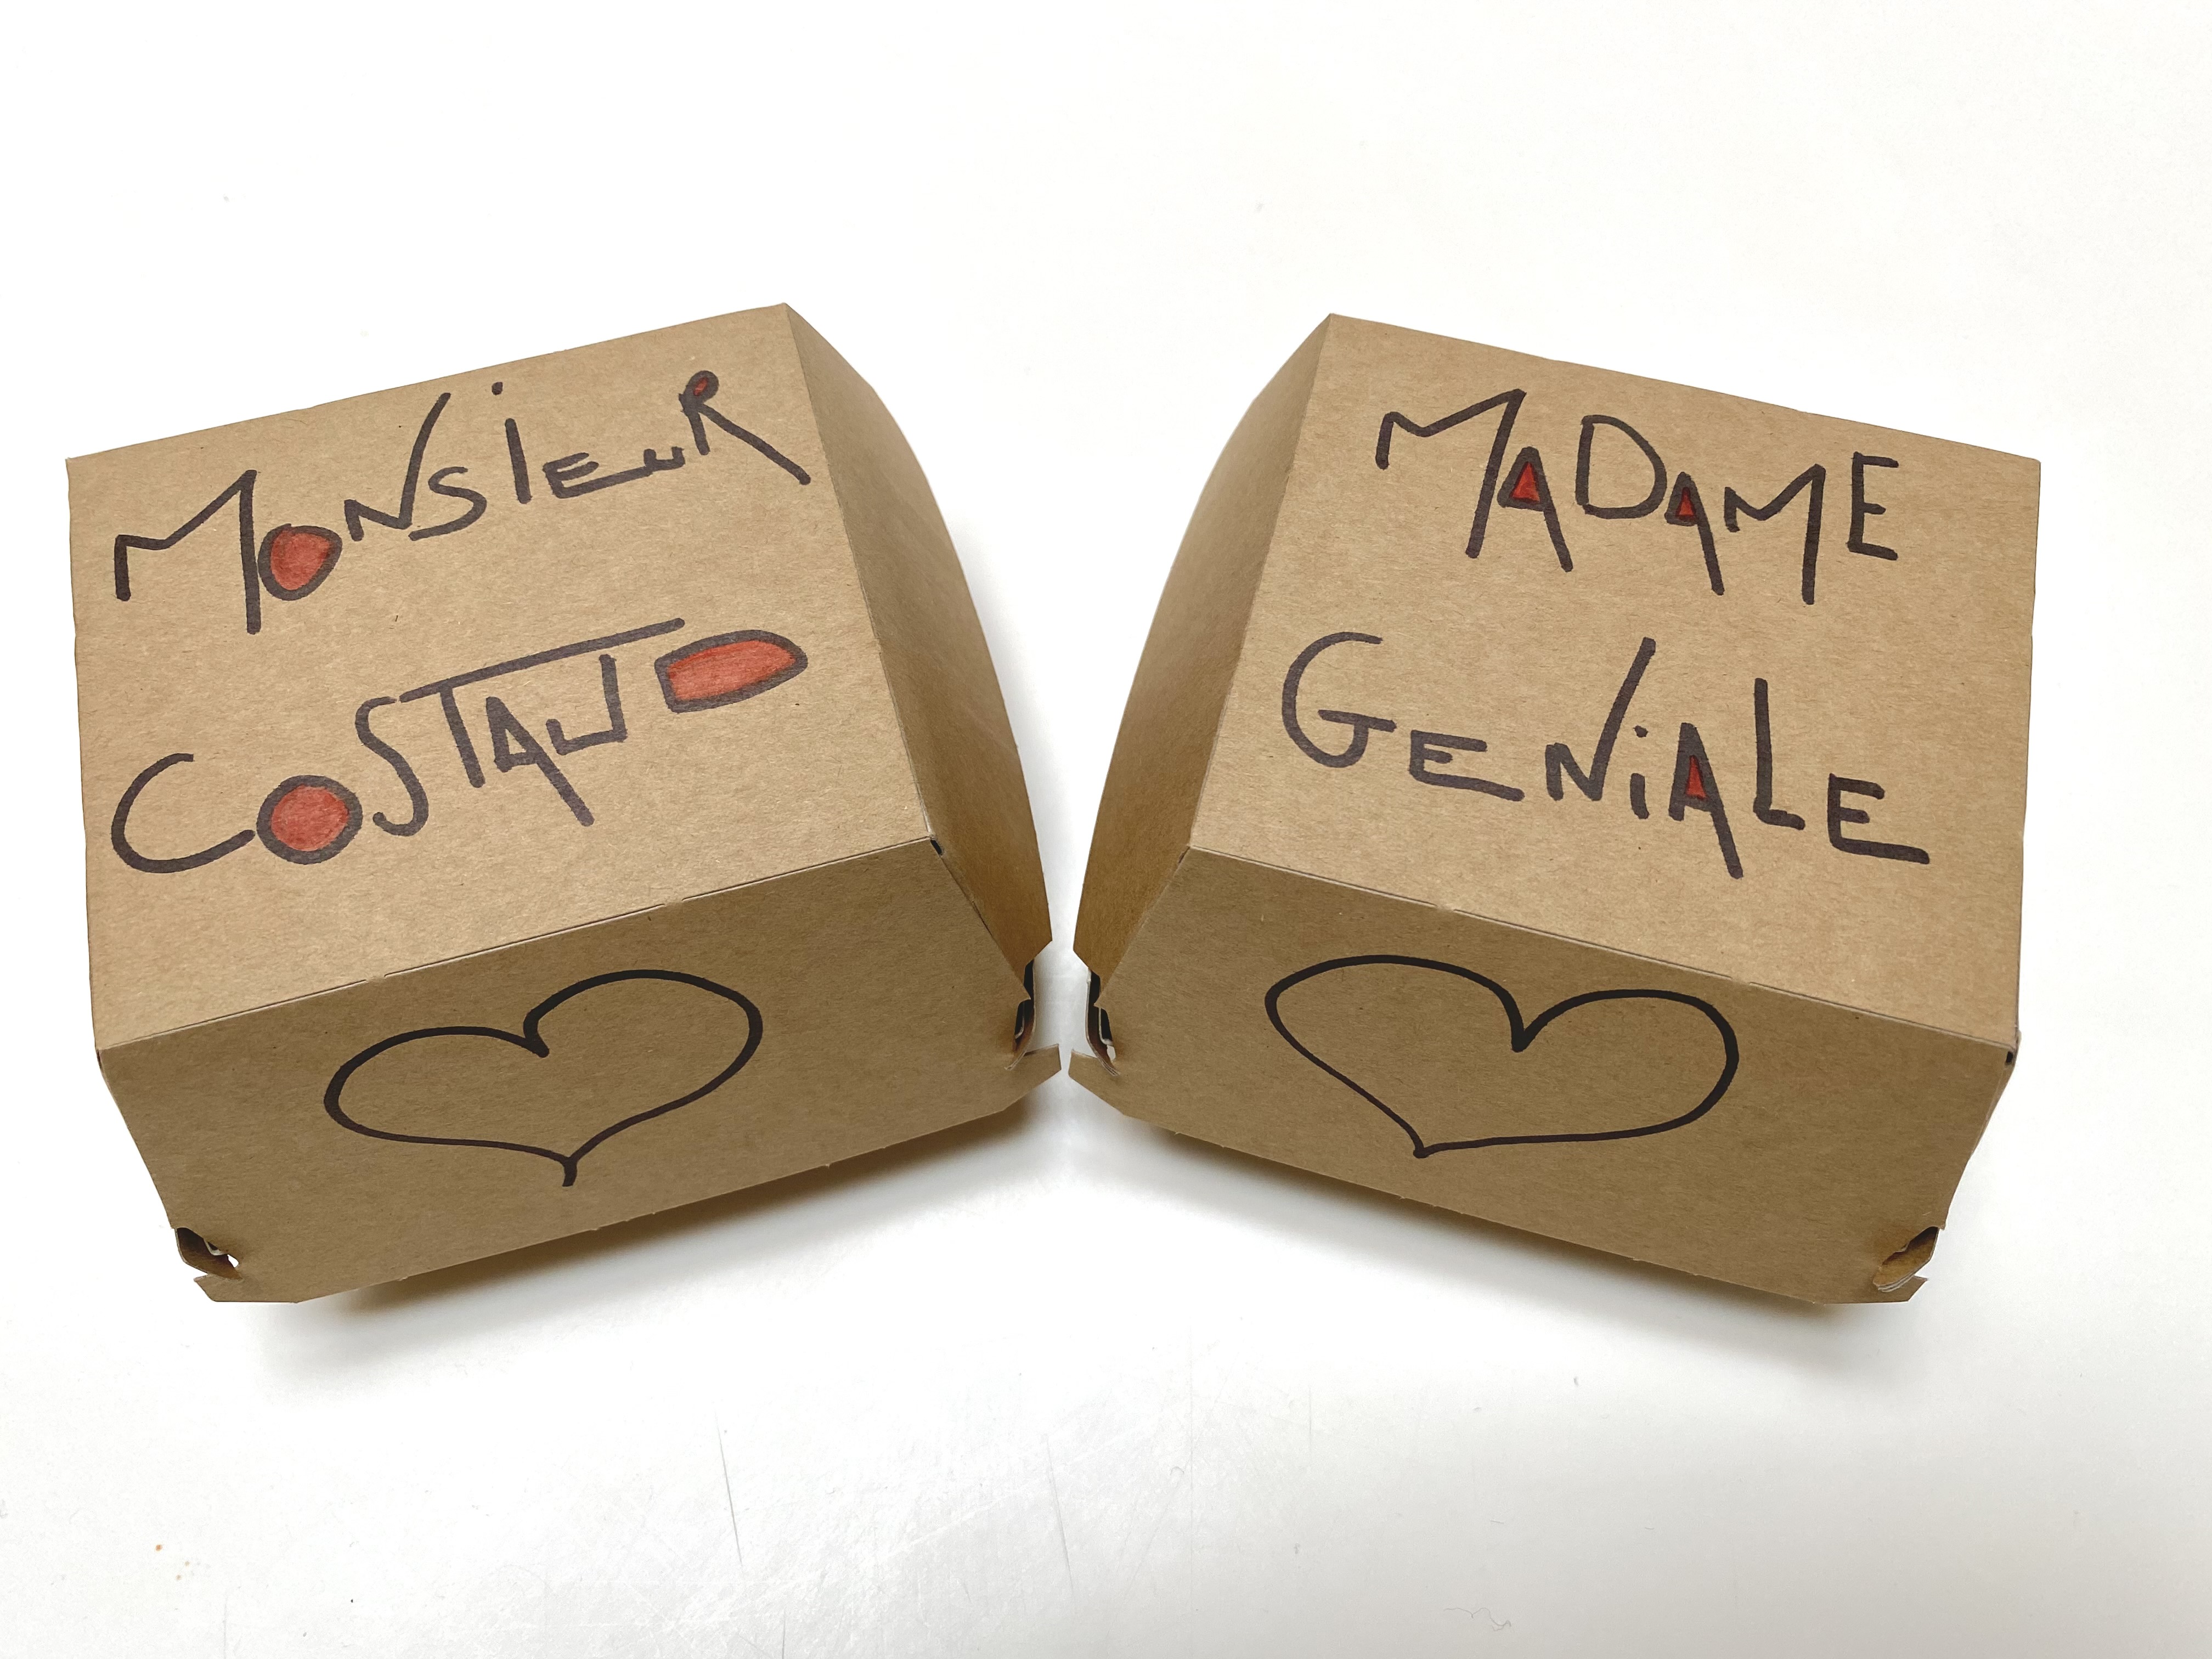 MONSIEUR
COSTAUD
MADAME
GENiALE